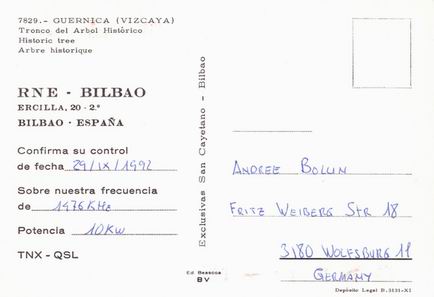 7829.- GUERNICA (VIZCAYA)
Tronco del Arbol Histórico
Historic tree
Arbre historique
RNE - BILBAO
ERCILLA, 20 - 2.º
BILBAO - ESPAÑA
Confirma su control
de fecha 29/IX/1992
Sobre nuestra frecuencia
de 1476 KHz
Potencia 10Kw
TNX - QSL
Exclusivas San Cayetano - Bilbao
Ed. Beascoa
BV
ANDREE BOLLIN
FRITZ WEIBERG STR 18
3180 WOLFSBURG 11
GERMANY
Depósito Legal B. 3131-XI